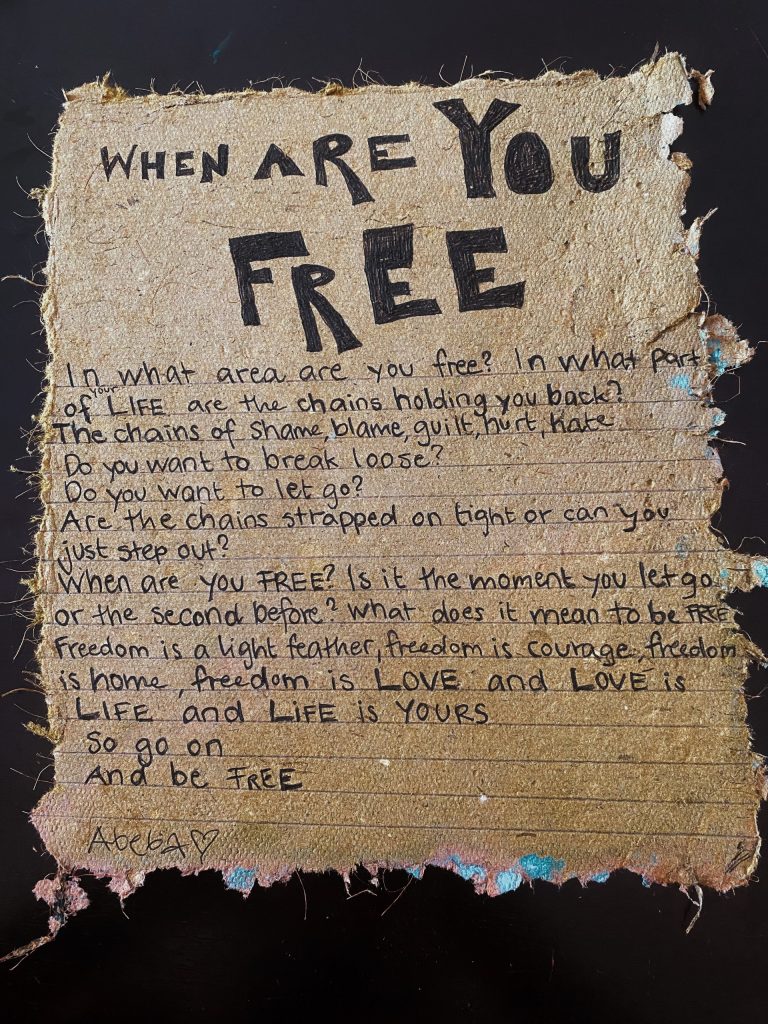 WHEN ARE YOU
FREE
In what area are you free? In what part
your
of LIFE are the chains holding you back?
The chains of shame, blame, guilt, hurt, hate
Do you want to break loose?
Do you want to let go?
Are the chains strapped on tight or can you
just step out?
When are you FREE? Is it the moment you let go
or the second before? What does it mean to be FREE
Freedom is a light feather, freedom is courage, freedom
is home, freedom is LOVE and LOVE is
LIFE and LIFE is YOURS
So go on
And be FREE
AbebA♡